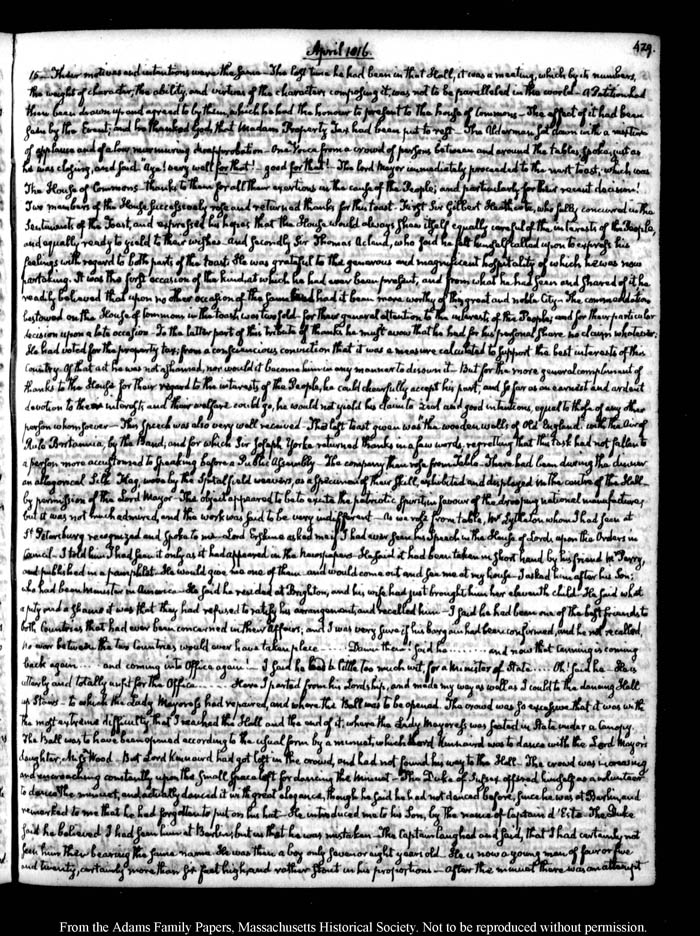 April 1816.
429.
15— Their motives and intentions were the same— The last time he had been in that Hall, it was a meeting, which by its numbers,
the weight of character, the ability, and virtues of the characters composing it, was not to be parallelled in the world— A Petition had
there been drawn up and agreed to by them, which he had the honour to present to the house of Commons— The effect of it had been
seen by the Event; and he thanked God, that Madam Property Tax had been put to rest— The Alderman sat down with a mixture
of applause and of a low murmuring disapprobation— One Voice from a crowd of persons between and around the tables, spoke just as
he was closing, and said "Aye! very well for that!— good for that!— The Lord Mayor immediately proceeded to the next toast, which was
The House of Commons— thanks to them for all their exertions in the cause of the People; and particularly for their recent decision!
Two members of the House successively rose and returned thanks for this toast. First Sir Gilbert Heathcote, who fully concurred in the
Sentiments of the Toast, and expressed his hopes that the House would always shew itself equally careful of the interests of the People,
and equally ready to yield to their wishes— And secondly Sir Thomas Acland, who said he felt himself called upon to express his
feelings with regard to both parts of the toast. He was grateful to the generous and magnificent hospitality of which he was now
partaking. It was the first occasion of the kind, at which he had ever been present, and from what he had seen and shared of it he
readily believed that upon no other occasion of the same kind had it been more worthy of this great and noble City— The commendation
bestowed on the House of Commons in the toast was two fold— for their general attention to the interests of the People, and for their particular
decision upon a late occasion. To the latter part of this tribute of thanks he must avow that he had for his personal share no claim whatever.
He had voted for the property tax; from a conscientious conviction that it was a measure calculated to support the best interests of this
Country. Of that act he was not ashamed, nor would it become him in any manner to disown it— But for the more general compliment of
thanks to the House for their regard to the interests of the People, he could cheerfully accept his part; and so far as an earnest and ardent
devotion to their interests and their welfare could go, he would not yield his claim to zeal and good intentions, equal to those of any other
person whomsoever— This Speech was also very well received— The last toast given was the wooden walls of Old England— with the Air of
Rule Brittannia, by the Band, and for which Sir Joseph Yorke returned thanks in a few words, regretting that the task had not fallen to
a person more accustomed to speaking before a Public Assembly— The company then rose from Table— There had been during the dinner
an allegorical Silk Flag, wove by the Spitalfield weavers, as a specimen of their skill, exhibited and displayed in the centre of the Hall—
by permission of the Lord Mayor— The object appeared to be to excite the patriotic spirit in favour of the drooping national manufacture;
but it was not much admired, and the work was said to be very indifferent— As we rose from table, Mr Lyttleton whom I had seen at
St Petersburg recognized and spoke to me— Lord Erskine asked me if I had ever seen his Speech in the House of Lords, upon the Orders in
Council— I told him I had seen it only as it had appeared in the newspapers. He said it had been taken in short hand by his friend Mr Perry,
and published in a pamphlet. He would give me one of them, and would come out and see me at my house— I asked him after his Son;
who had been Minister in America— He said he resided at Brighton, and his wife had just brought him her eleventh child. He said what
a pity and a shame it was that they had refused to ratify his arrangement, and recalled him— I said he had been one of the best friends to
both Countries that had ever been concerned in their Affairs; and I was very sure, if his bargain had been confirmed, and he not recalled,
no war between the two Countries would ever have taken place ...... Damn them! said he ...... and now that Canning is coming
back again .... and coming into Office again!— I said he had a little too much wit, for a Minister of State .... Oh! said he— He is
utterly and totally unfit for the Office ...... Here I parted from his Lordship, and made my way as well as I could to the dancing Hall
up Stairs— to which the Lady Mayoress had repaired, and where the Ball was to be opened. The crowd was so excessive that it was with
the most extreme difficulty that I reached the Hall and the end of it, where the Lady Mayoress was seated in State under a Canopy.
The Ball was to have been opened according to the usual form by a minuet, which Lord Kinnaird was to dance with the Lord Mayor's
daughter, Miss Wood— But Lord Kinnaird had got lost in the crowd, and had not found his way to the Hall— The crowd was increasing
and encroaching constantly upon the small space left for dancing the Minuet— The Duke of Sussex offered himself as a volunteer
to dance the minuet, and actually danced it with great elegance, though he said he had not danced before, since he was at Berlin, and
remarked to me that he had forgotten to put on his hat— He introduced me to his Son, by the name of Captain d'Este— The Duke
said he believed I had seen him at Berlin; but in that he was mistaken. The Captain laughed and said, that I had certainly not
seen him there bearing the same name. He was then a boy only seven or eight years old— He is now a young man of four or five
and twenty, certainly more than six feet high, and rather stout in his proportions— After the minuet there was an attempt
From the Adams Family Papers, Massachusetts Historical Society. Not to be reproduced without permission.